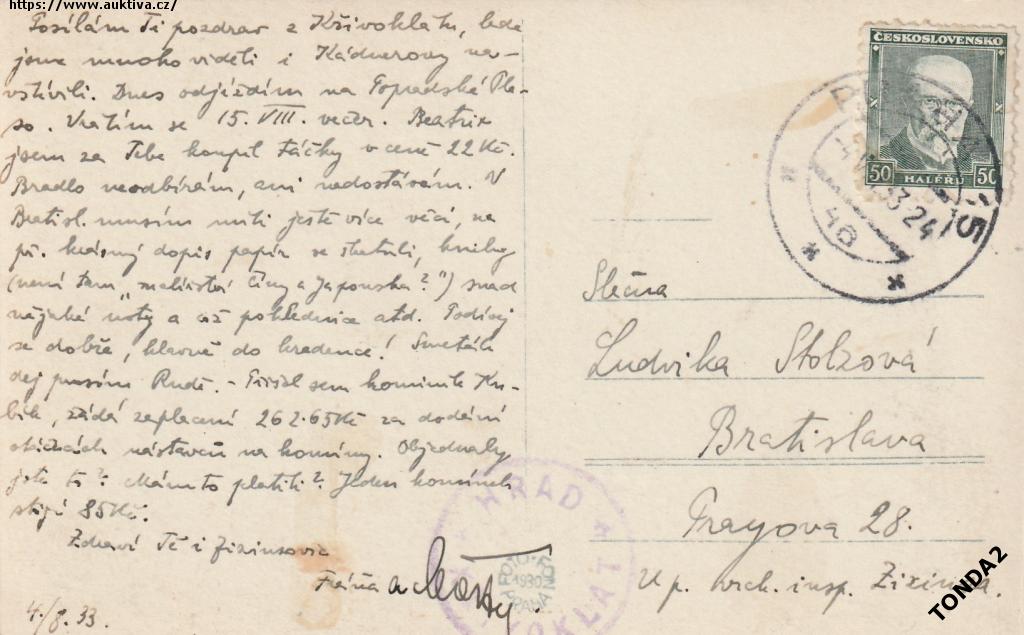 https://www.auktiva.cz/
Posílám Ti pozdrav z Křivoklátu, kde
jsme mnoho viděli i Kádnerovy na-
vštívili. Dnes odjíždím na Popradské Ple-
so. Vrátím se 15. VIII. večer. Beatrix
jsem za Tebe koupil fáčky v ceně 22 Kč.
Bradlo neodbírám, ani nedostávám. V
Bratisl. musím míti ještě více věcí, na
př. krásný dopis papír se štatulí, knihy
(není tam "malířství Číny a Japonska?") snad
nějaké noty a též pohlednice atd. Podívej
se dobře, hlavně do kredence! Smeták
dej prosím Rudě. - Přišel sem kominík Ku-
bík, žádá zaplacení 262.65 Kč za dodání
otáčecích nástavců na komíny. Objednaly
jste to? Mám to platiti? Jeden komínek
stojí 85 Kč.
Zdraví Tě i Zixinsovic
Fráňa a
4./8. 33.
ČESKOSLOVENSKO
50 HALÉŘŮ 50
33 24
46
15
Slečna
Ludvika Stolzová
Bratislava
Grayova 28.
U p. vrch. insp. Zixinsa.
HRAD
KŘIVOKLÁT
FOTO-FON
1930
PRAHA
TONDA2